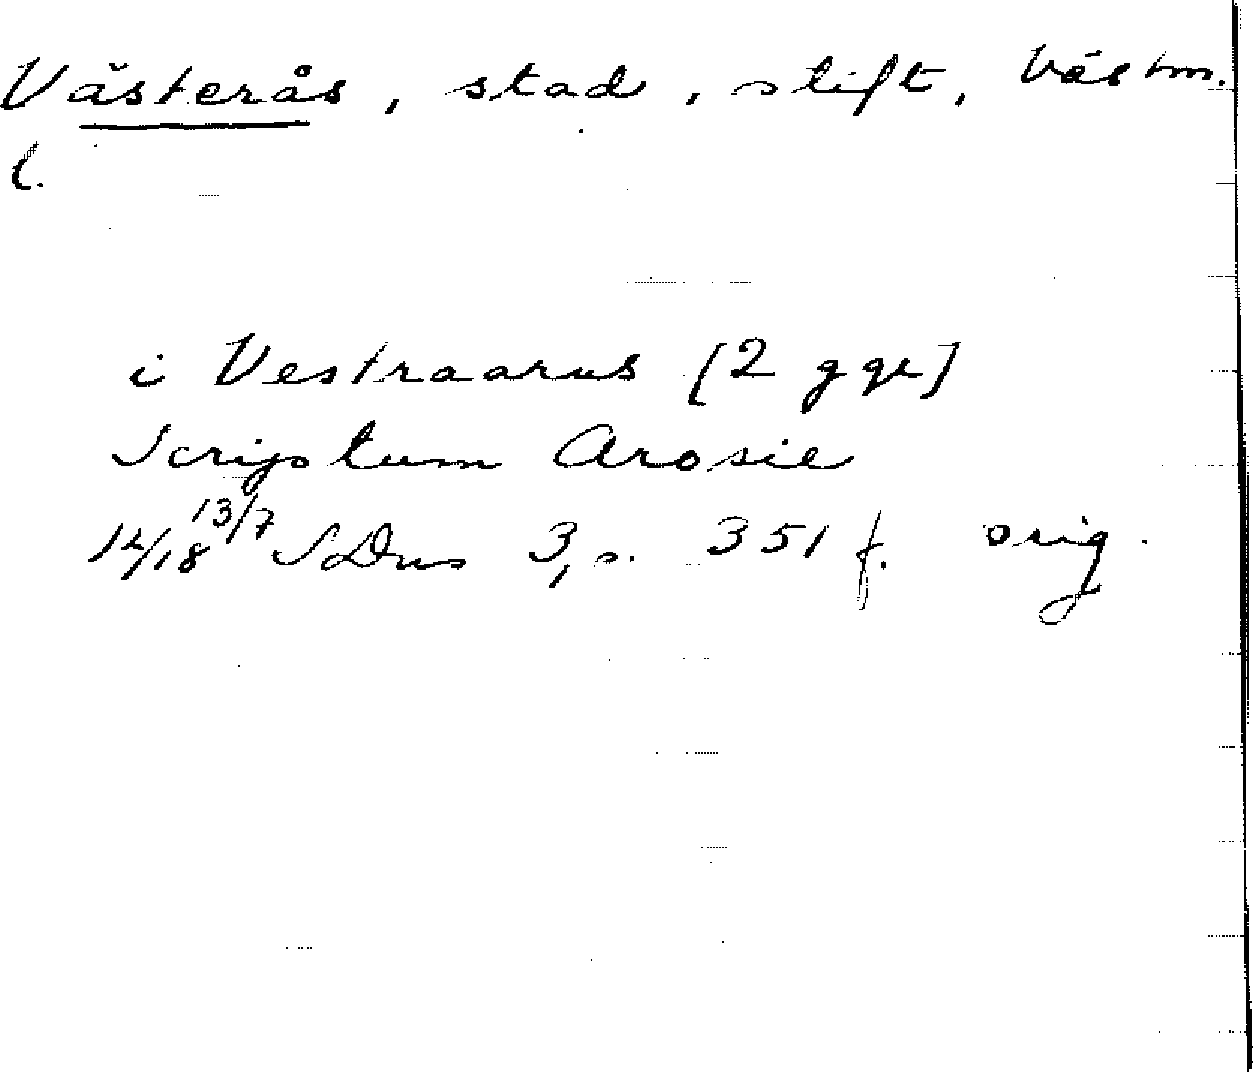 Västerås, stad, stift, Västm.
l.
i Vestraarus [2 ggr]
Scriptum Arosie
14/18 13/7 SDns 3, s. 351 f. orig.